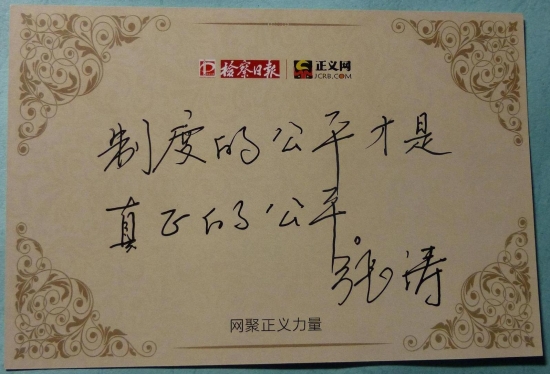 检察日报 正义网
JCRB.COM
制度的公平才是
真正的公平。
张涛
网聚正义力量